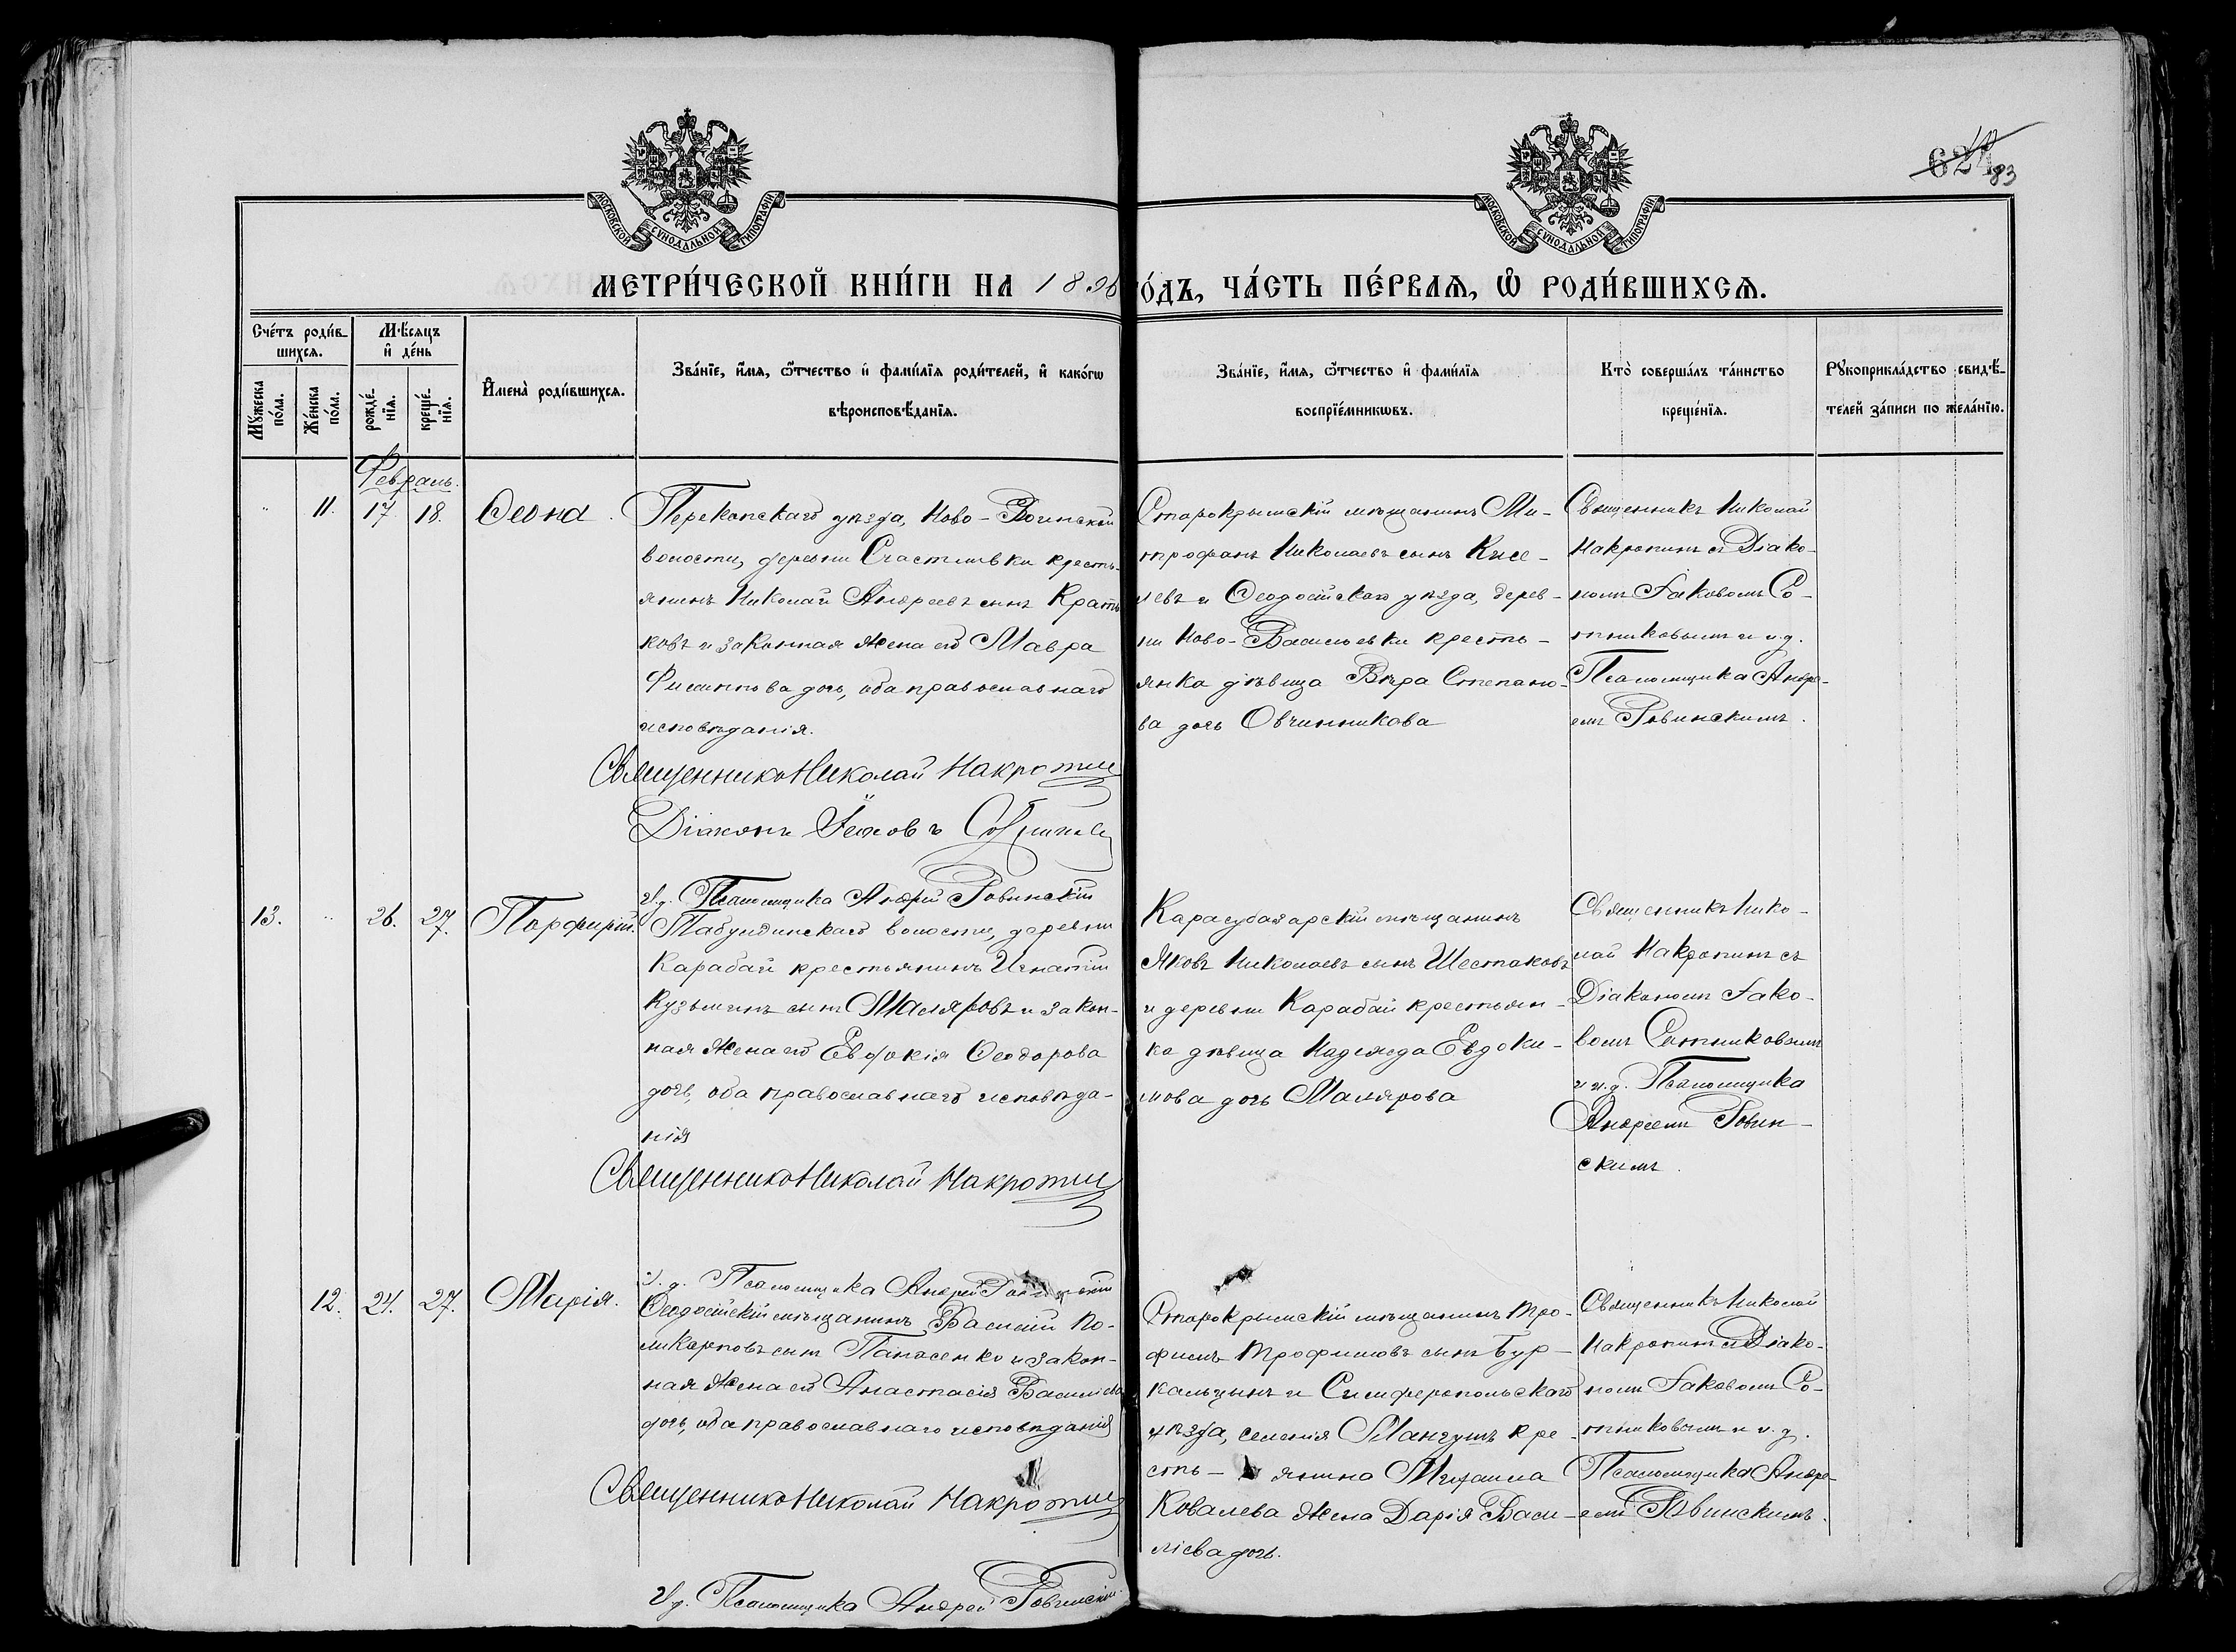 МОСКОВСКОЙ СѴНОДАЛЬНОЙ ТИПОГРАФІИ
МОСКОВСКОЙ СѴНОДАЛЬНОЙ ТИПОГРАФІИ
624
83
МЕТРИ́ЧЕСКОЙ КНИ́ГИ НА 1896
О́ДЪ, ЧА́СТЬ ПЕ́РВАѦ, Ѡ҆ РОДИ́ВШИХСѦ.
Сче́тъ роди́в-
шихсѧ.
Мꙋ́жеска по́ла.
Же́нска по́ла.
Мѣ́сѧцъ и҆ де́нь
рожде́-нїѧ.
креще́-нїѧ.
И҆мена̀ роди́вшихсѧ.
Зва́нїе, и҆́мѧ, ѻ҆́тчество и҆ фами́лїѧ роди́телей, и҆ како́гѡ
вѣроисповѣ́данїѧ.
Зва́нїе, и҆́мѧ, ѻ҆́тчество и҆ фами́лїѧ
воспрїе́мникѡвъ.
Кто̀ соверша́лъ та́инство
креще́нїѧ.
Рꙋкоприкла́дство свидѣ́-
телей за́писи по жела́нїю.
Февраль.
11. 17. 18. Ѳеона.
Перекопскаго уѣзда, Ново-
волости, деревни Счастливки кресть-
янинъ Николай Андреевъ сынъ
ковъ и законная жена его Мавра
Филиппова дочь, оба православнаго
исповѣданія.
Священникъ Николай Накропин
Діаконъ Іаковъ Сотников
И. д. Псаломщика Андрей Ровинскій
Старокрымскій мѣщанинъ Ми-
трофанъ Николаевъ сынъ Кисе-
левъ и Ѳеодосійскаго уѣзда, дерев-
ни Ново-Васильевки кресть-
янка дѣвица Вѣра Степано-
ва дочь Овчинникова
Священникъ Николай
Накропинъ съ Діако-
номъ Іаковомъ Со-
тниковымъ и и. д.
Псаломщика Андре-
емъ Ровинскимъ.
13. 26. 27. Порфирій.
Табулдинской волости, деревни
Карабай крестьянинъ Игнатій
Кузьминъ сынъ Маляровъ и закон-
ная жена его Евдокія Ѳеодорова
дочь, оба православнаго исповѣда-
нія
Священникъ Николай Накропин
И. д. Псаломщика Андрей
Карасубазарскій мѣщанинъ
Яковъ Николаевъ сынъ Шестаковъ
и деревни Карабай крестьян-
ка дѣвица Надежда Евдоки-
мова дочь Малярова
Священникъ Нико-
лай Накропинъ съ
Діакономъ Іако-
вомъ Сотниковымъ
и и. д. Псаломщика
Андреемъ Ровин-
скимъ.
12. 24. 27. Марія.
Ѳеодосійскій мѣщанинъ Василій По-
ликарповъ сынъ Панасенко и закон-
ная жена его Анастасія Василіева
дочь, оба православнаго исповѣданія
Священникъ Николай Накропин
И. д. Псаломщика Андрей Ровинскій
Старокрымскій мѣщанинъ Тро-
фимъ Трофимовъ сынъ Бур-
кальцынъ и Симферопольскаго
уѣзда, селенія Мангушъ кре-
сть- янина Михаила
Ковалева жена Дарія Васи-
ліева дочь.
Священникъ Николай
Накропинъ съ Діако-
номъ Іаковомъ Со-
тниковымъ и и. д.
Псаломщика Андре-
емъ Ровинскимъ.